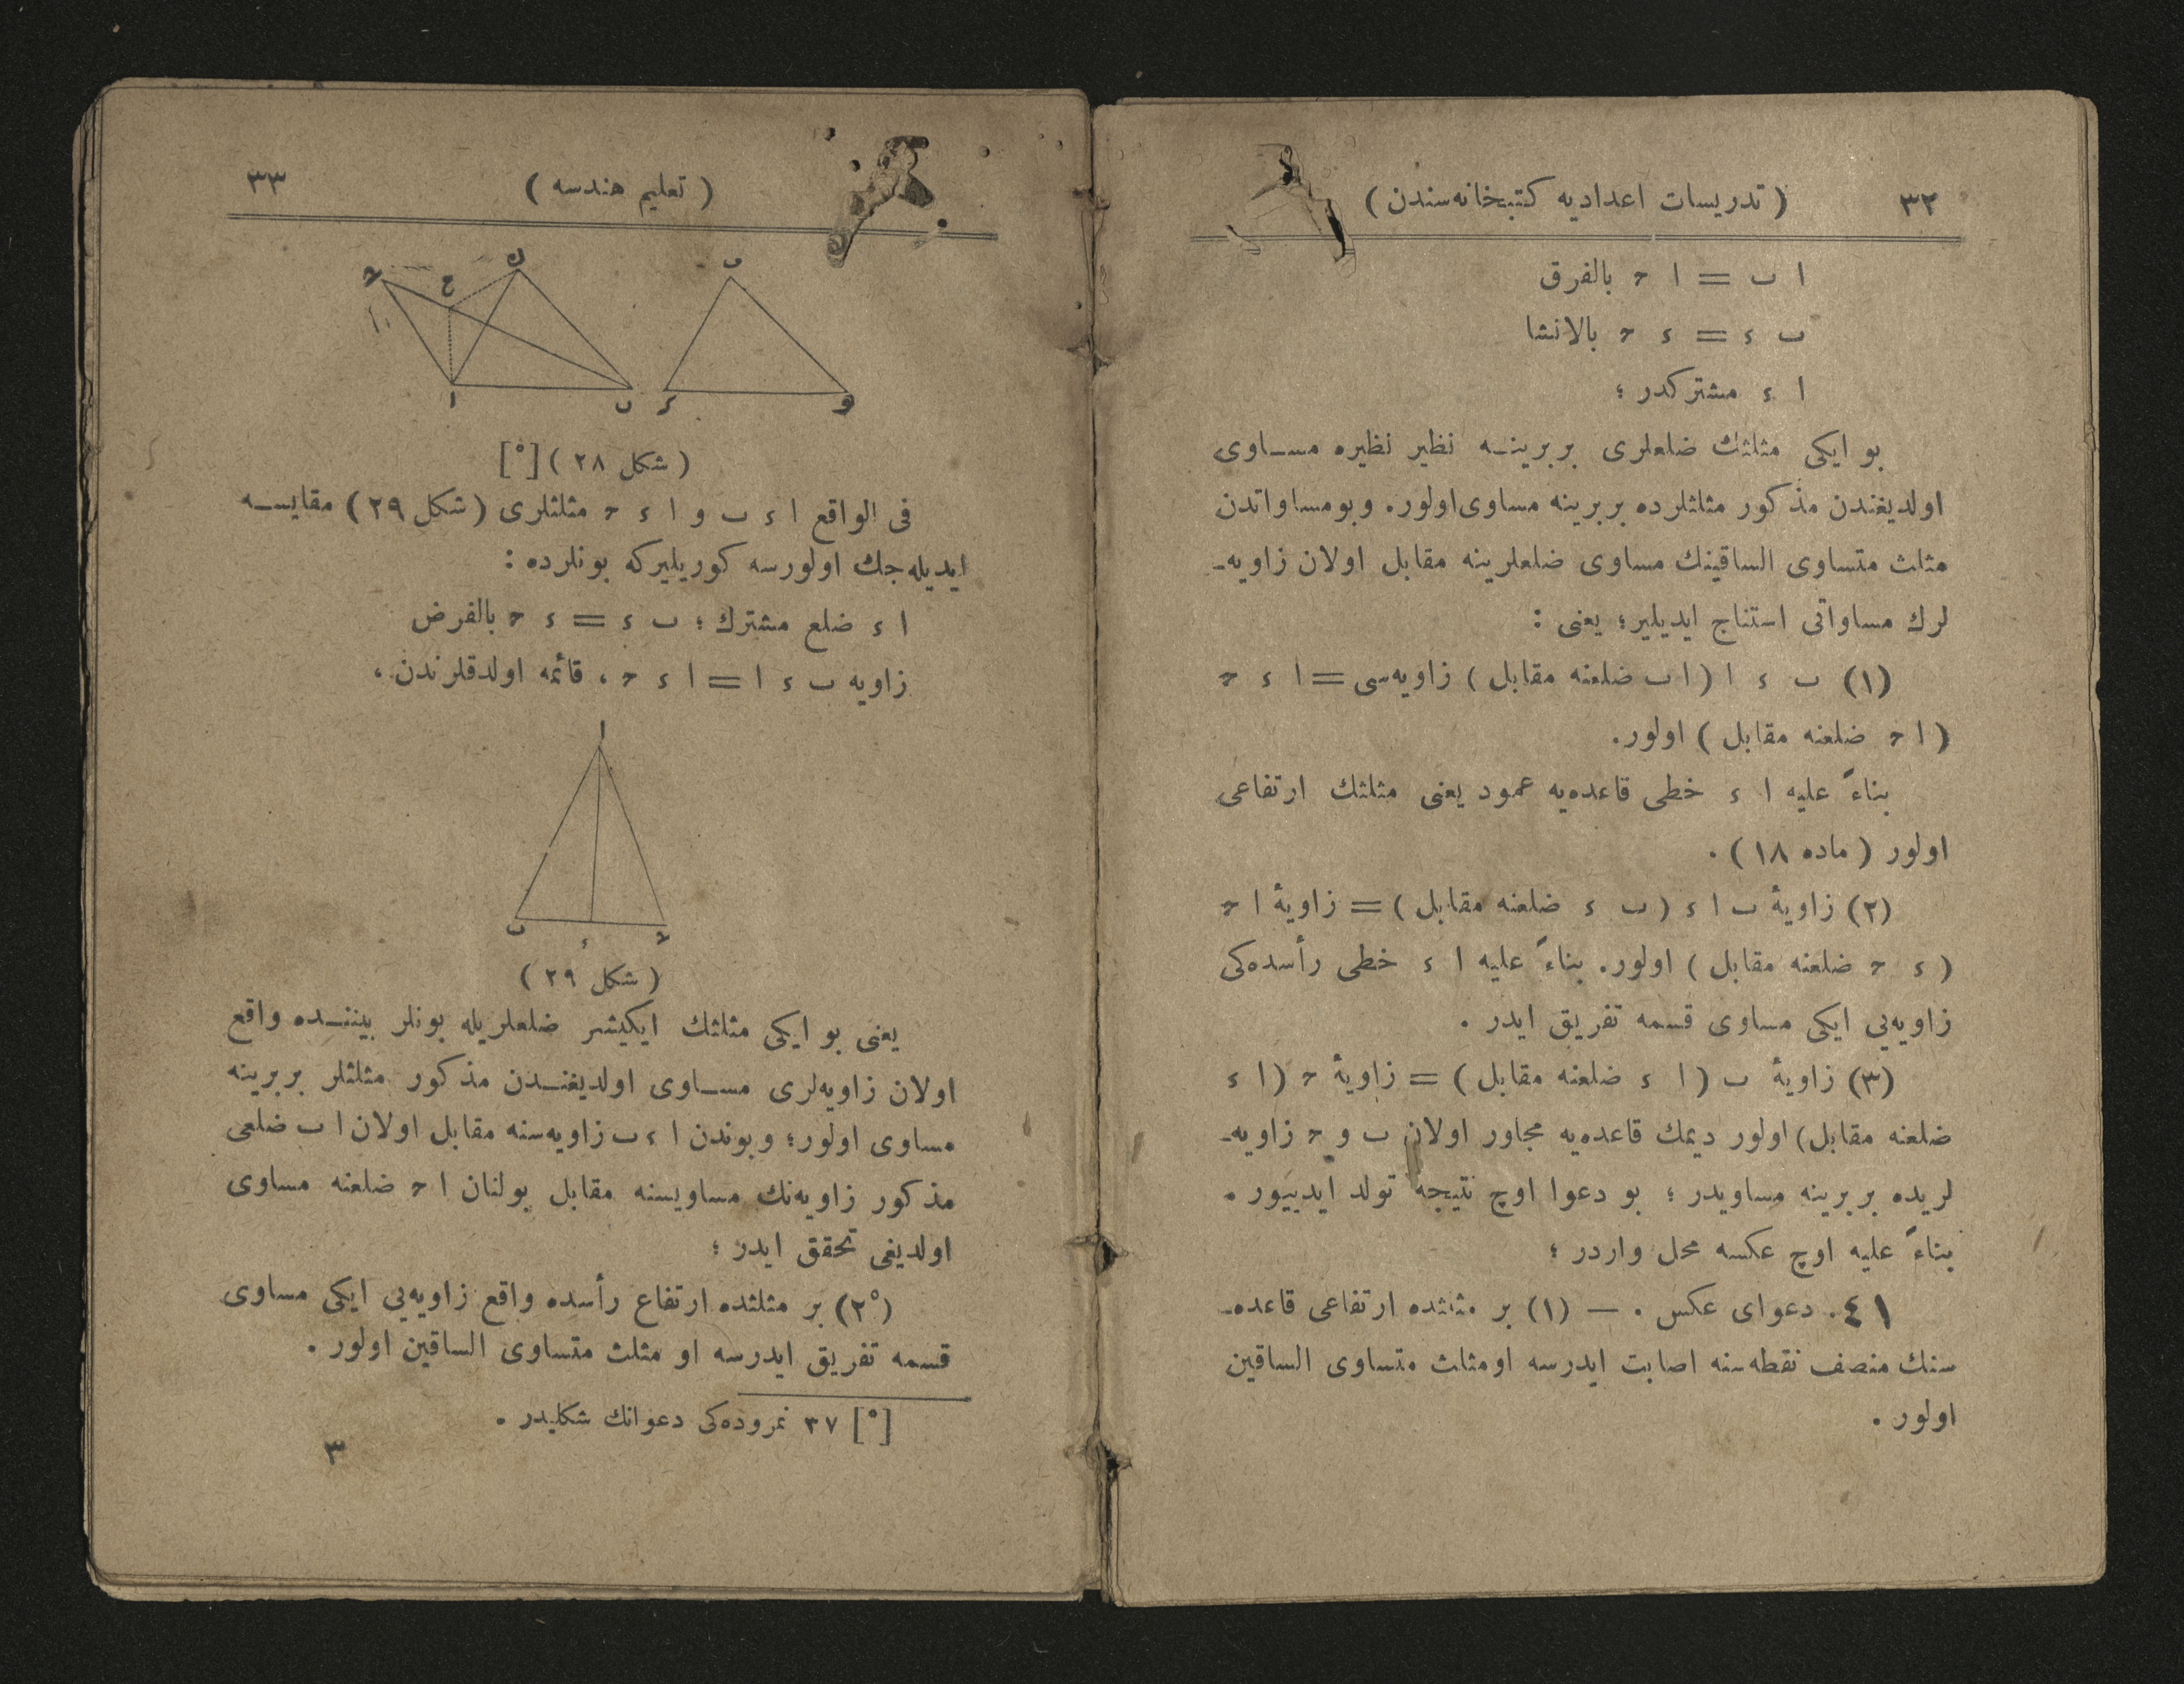 ٣٢
( تدريسات اعداديه كتبخانه‌سندن )
ا ب = ا ح بالفرق
ب ء = ء ح بالانشا
ا ء مشتركدر ؛
بو ايكى مثلثك ضلعلرى بربرينه نظير نظيره مساوى
اولديغندن مذكور مثلثلرده بربرينه مساوى اولور. و بو مساواتدن
مثلث متساوى الساقينك مساوى ضلعلرينه مقابل اولان زاويه‌ـ
لرك مساواتى استنتاج ايديلير؛ يعنى :
(١) ب ء ا ( ا ب ضلعنه مقابل ) زاويه‌سى = ا ء ح
( ا ح ضلعنه مقابل ) اولور.
بناءً عليه ا ء خطى قاعده‌يه عمود يعنى مثلثك ارتفاعى
اولور ( ماده ١٨ ) .
(٢) زاويۀ ب ا ء ( ب ء ضلعنه مقابل ) = زاويۀ ا ح
( ء ح ضلعنه مقابل ) اولور. بناءً عليه ا ء خطى رأسده‌كى
زاويه‌يى ايكى مساوى قسمه تفريق ايدر .
(٣) زاويۀ ب ( ا ء ضلعنه مقابل ) = زاويۀ ح ( ا ء
ضلعنه مقابل) اولور ديمك قاعده‌يه مجاور اولان ب و ح زاويه‌ـ
لريده بربرينه مساويدر ؛ بو دعوا اوچ نتيجه تولد ايدييور .
بناءً عليه اوچ عكسه محل واردر ؛
٤١. دعواى عكس . — (١) بر مثلثده ارتفاعى قاعده‌ـ
سنك منصف نقطه‌سنه اصابت ايدرسه اومثلث متساوى الساقين
اولور .
( تعليم هندسه )
٣٣
ح ع ك ب
ا ب ء و
( شكل ٢٨ ) [°]
فى الواقع ا ء ب و ا ء ح مثلثلرى ( شكل ٢٩ ) مقايسه
ايديله‌جك اولورسه كوريليركه بونلرده :
ا ء ضلع مشترك ؛ ب ء = ء ح بالفرض
زاويه ب ء ا = ا ء ح ، قائمه اولدقلرندن ،
ا
ب ء ح
( شكل ٢٩ )
يعنى بو ايكى مثلثك ايكيشر ضلعلريله بونلر بيننده واقع
اولان زاويه‌لرى مساوى اولديغندن مذكور مثلثلر بربرينه
مساوى اولور؛ و بوندن ا ء ب زاويه‌سنه مقابل اولان ا ب ضلعى
مذكور زاويه‌نك مساويسنه مقابل بولنان ا ح ضلعنه مساوى
اولديغى تحقق ايدر ؛
(٢°) بر مثلثده ارتفاع رأسده واقع زاويه‌يى ايكى مساوى
قسمه تفريق ايدرسه او مثلث متساوى الساقين اولور .
[°] ٣٧ نمروده‌كى دعوانك شكليدر .
٣